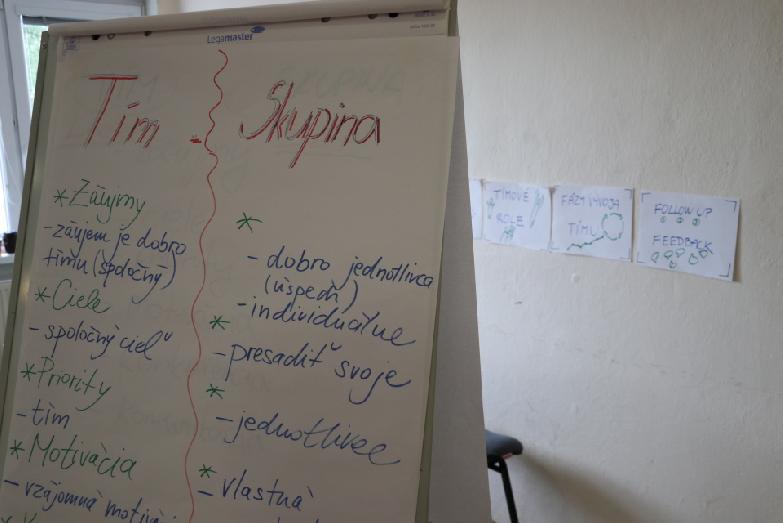 Legamaster
Tím - Skupina
* Záujmy
- záujem je dobro
tímu (spoločný)
* Ciele
- spoločný cieľ
* Priority
- tím
* Motivácia
- vzájomná
*
- dobro jednotlivca
(úspech)
- individuálne
*
- presadiť svoje
*
- jednotlivec
*
- vlastná
TÍMOVÉ
ROLE
FÁZY VÝVOJA
TÍMU
FOLLOW UP
FEEDBACK